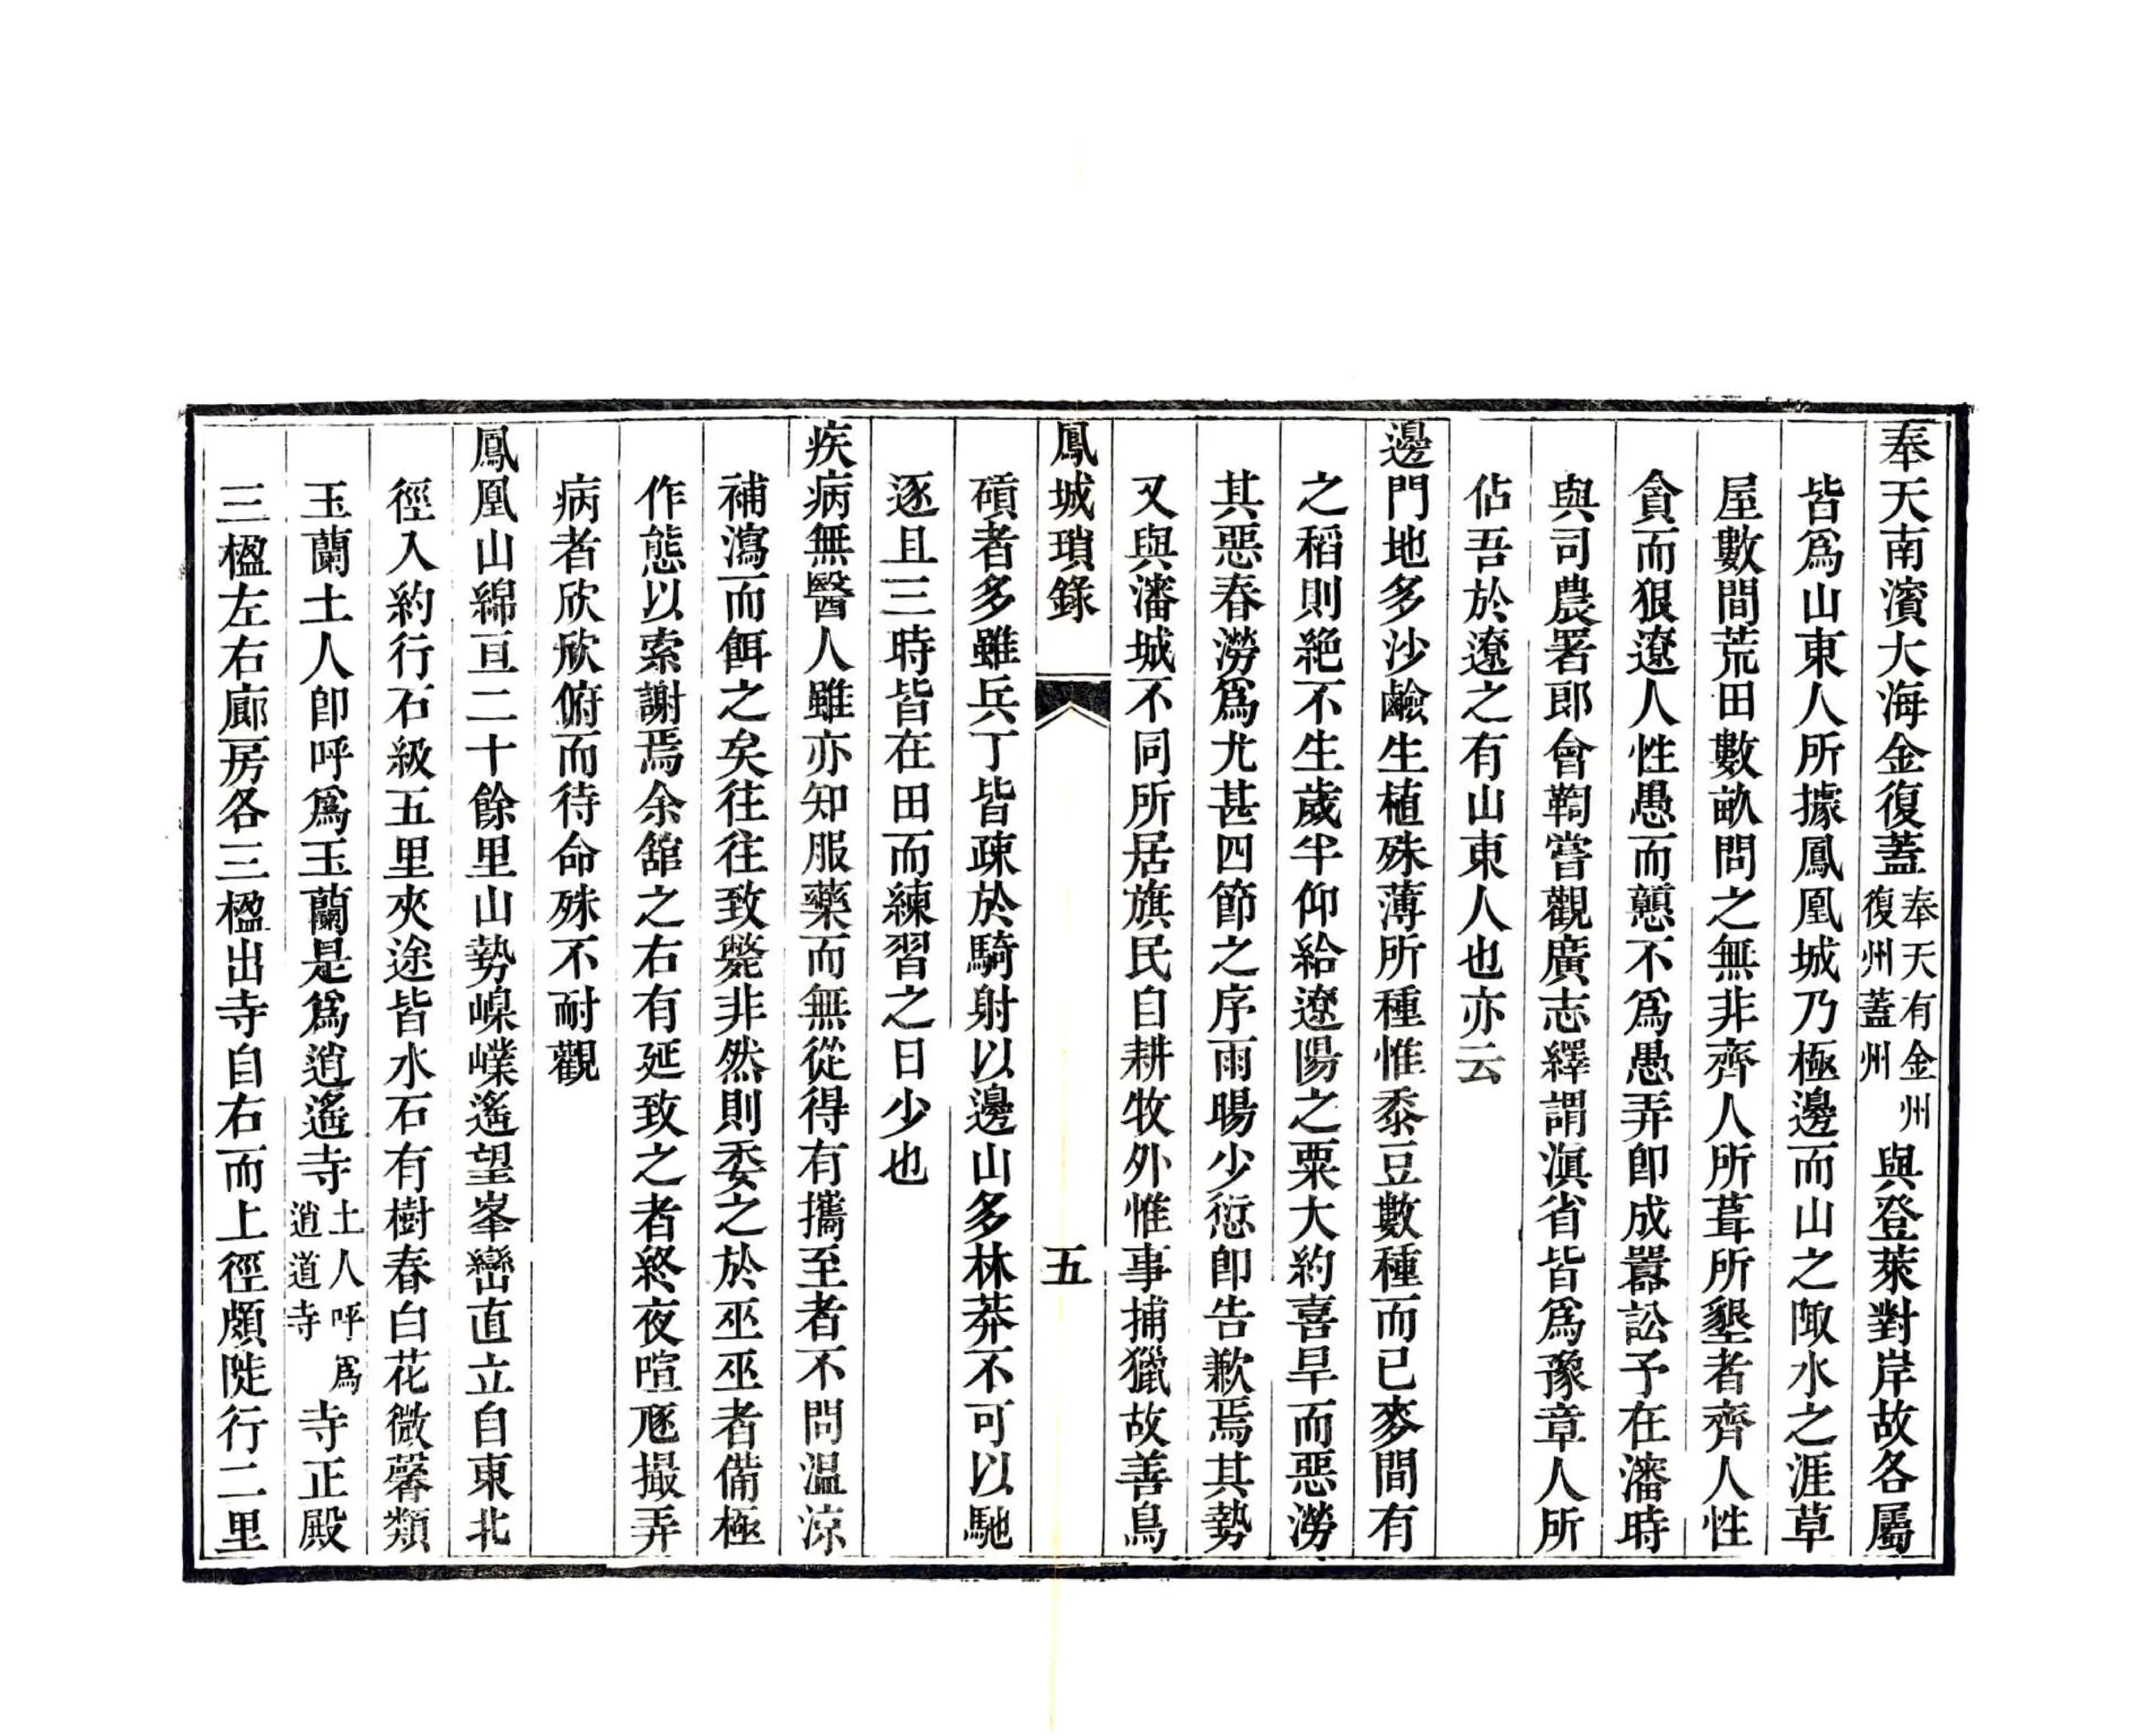 奉天南濱大海金復蓋奉天有金州復州蓋州與登萊對岸故各屬
皆爲山東人所據鳳凰城乃極邊而山之陬水之涯草
屋數間荒田數畝問之無非齊人所葺所墾者齊人性
貪而狠遼人性愚而戇不爲愚弄卽成嚻訟予在瀋時
與司農署郎會鞫嘗觀廣志繹謂滇省皆爲豫章人所
佔吾於遼之有山東人也亦云
邊門地多沙鹼生植殊薄所種惟黍豆數種而已麥間有
之稻則絶不生歲半仰給遼陽之粟大約喜旱而惡澇
其惡春澇爲尤甚四節之序雨暘少愆卽告歉焉其勢
又與瀋城不同所居旗民自耕牧外惟事捕獵故善鳥
鳳城瑣錄
五
磧者多雖兵丁皆疎於騎射以邊山多林莽不可以馳
逐且三時皆在田而練習之日少也
疾病無醫人雖亦知服藥而無從得有攜至者不問溫涼
補瀉而餌之矣往往致斃非然則委之於巫巫者備極
作態以索謝焉余舘之右有延致之者終夜喧豗撮弄
病者欣欣俯而待命殊不耐觀
鳳凰山綿亘二十餘里山勢嵲嶫遙望峯巒直立自東北
徑入約行石級五里夾途皆水石有樹春白花微馨類
玉蘭土人卽呼爲玉蘭是爲逍遙寺土人呼爲逍道寺寺正殿
三楹左右廊房各三楹出寺自右而上徑頗陡行二里